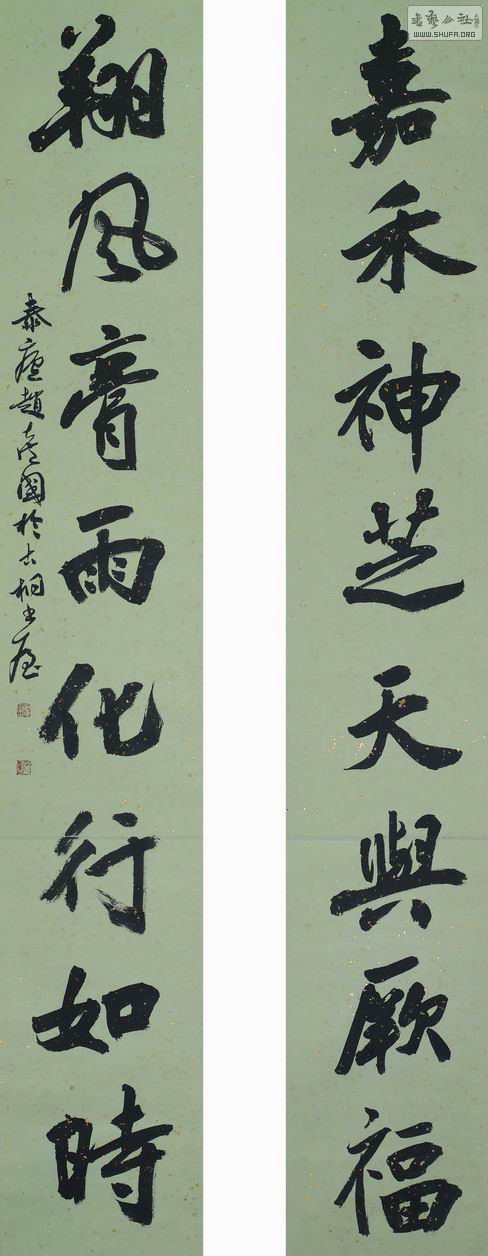 嘉禾神芝天與厥福
翔風膏雨化行如時
泰廬趙
國於古桐書屋
書艺公社
WWW.SHUFA.ORG